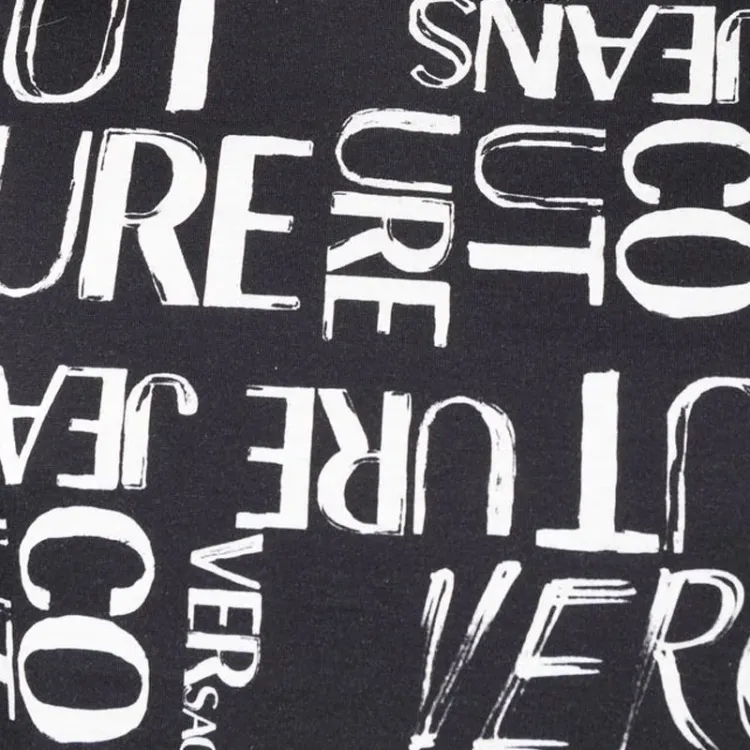 UT
JEANS
URE
URE
UT
CO
JEA
UTURE
CO
VERSAC
VER